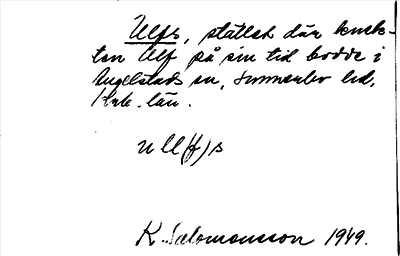 Ulfs, stället där kusk-
ten Ulf på sin tid bodde i
Angelstads sn, Sunnerbo hd,
Krb. län.
u ll(f)s
K. Salomonsson 1949.